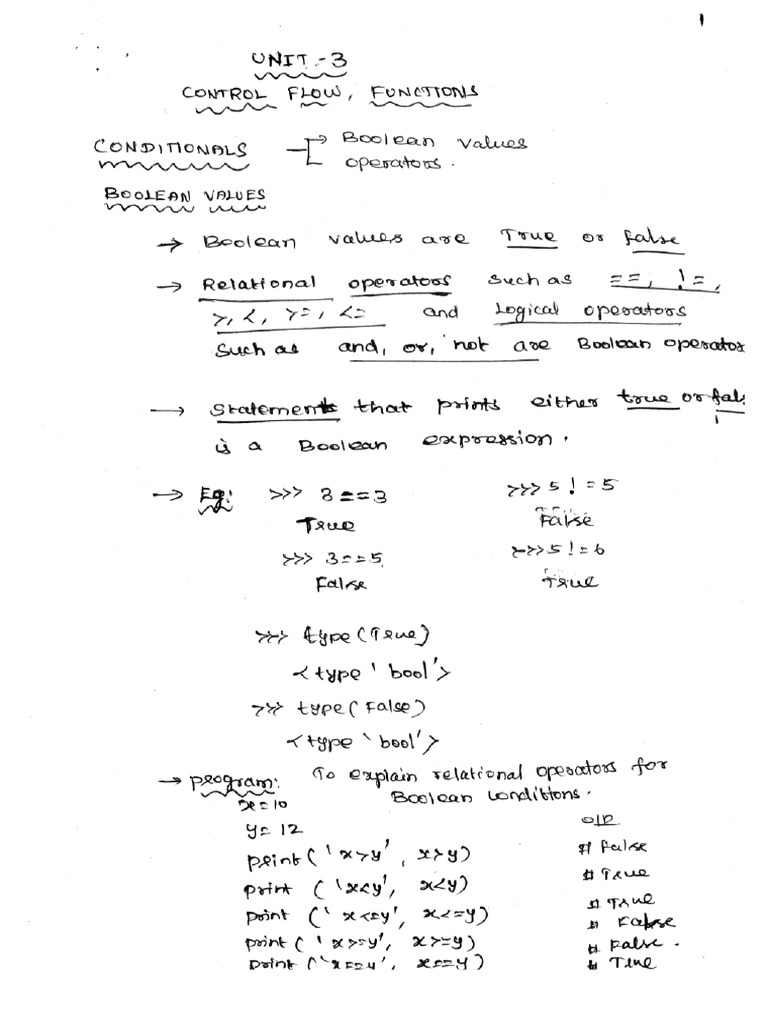 1
UNIT-3
CONTROL FLOW, FUNCTIONS
CONDITIONALS → Boolean values
operators.
BOOLEAN VALUES
→ Boolean values are True or false
→ Relational operators such as ==, !=,
>, <, >=, <= and Logical operators
such as and, or, not are Boolean operator
→ Statement that prints either true or fal
is a Boolean expression.
→ Eg: >>> 3 == 3 >>> 5 != 5
True False
>>> 3==5 >>> 5!=6
False True
>>> type(True)
<type 'bool'>
>>> type(False)
<type 'bool'>
→ program: To explain relational operators for
x=10 Boolean conditions.
y=12 o/p
print('x>y', x>y) # False
print ('x<y', x<y) # True
print (' x<=y', x<=y) # True
print(' x>=y', x>=y) # False
# False.
print ('x==y', x==y) # True